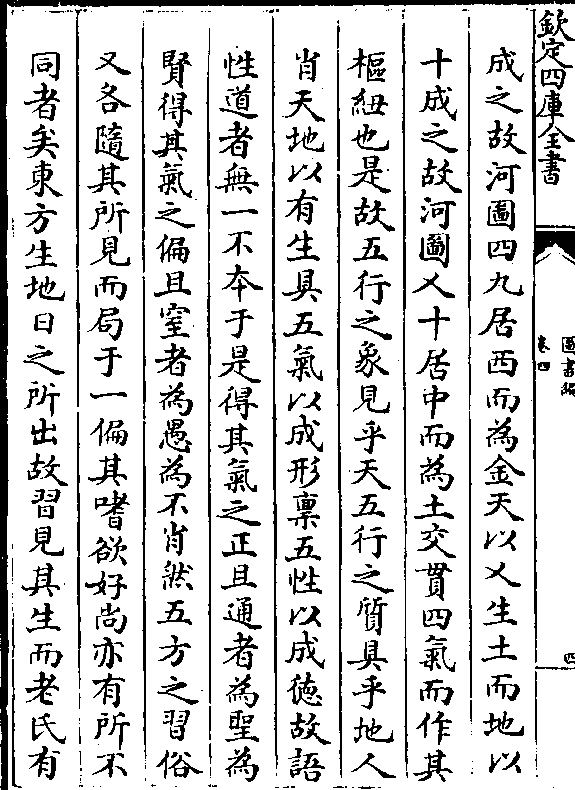 欽定四庫全書
圖書編
卷四
四
成之故河圖四九居西而為金天以㐅生土而地以
十成之故河圖㐅十居中而為土交貫四氣而作其
樞紐也是故五行之象見乎天五行之質具乎地人
肖天地以有生具五氣以成形禀五性以成德故語
性道者無一不夲于是得其氣之正且通者為聖為
賢得其氣之偏且窒者為愚為不肖然五方之習俗
又各隨其所見而局于一偏其嗜欲好尚亦有所不
同者矣東方生地日之所出故習見其生而老氏有